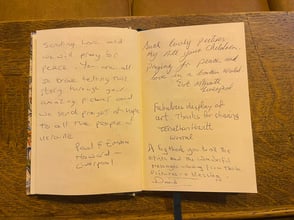 Sending Love and
we will pray for
peace. You are all
so brave telling this
story through your
amazing pictures and
we send prayers of hope
to all the people of
Ukraine
Paul & Emma
Howard -
Liverpool
Such lovely pictures
by all your children.
Praying for peace and
love in a broken world.
Eve
Liverpool
Fabulous display of
art. Thanks for sharing
Jonathan Hewitt
Wirral
A big thank you to all the
artists and the wonderful
messages
pictures - a blessing